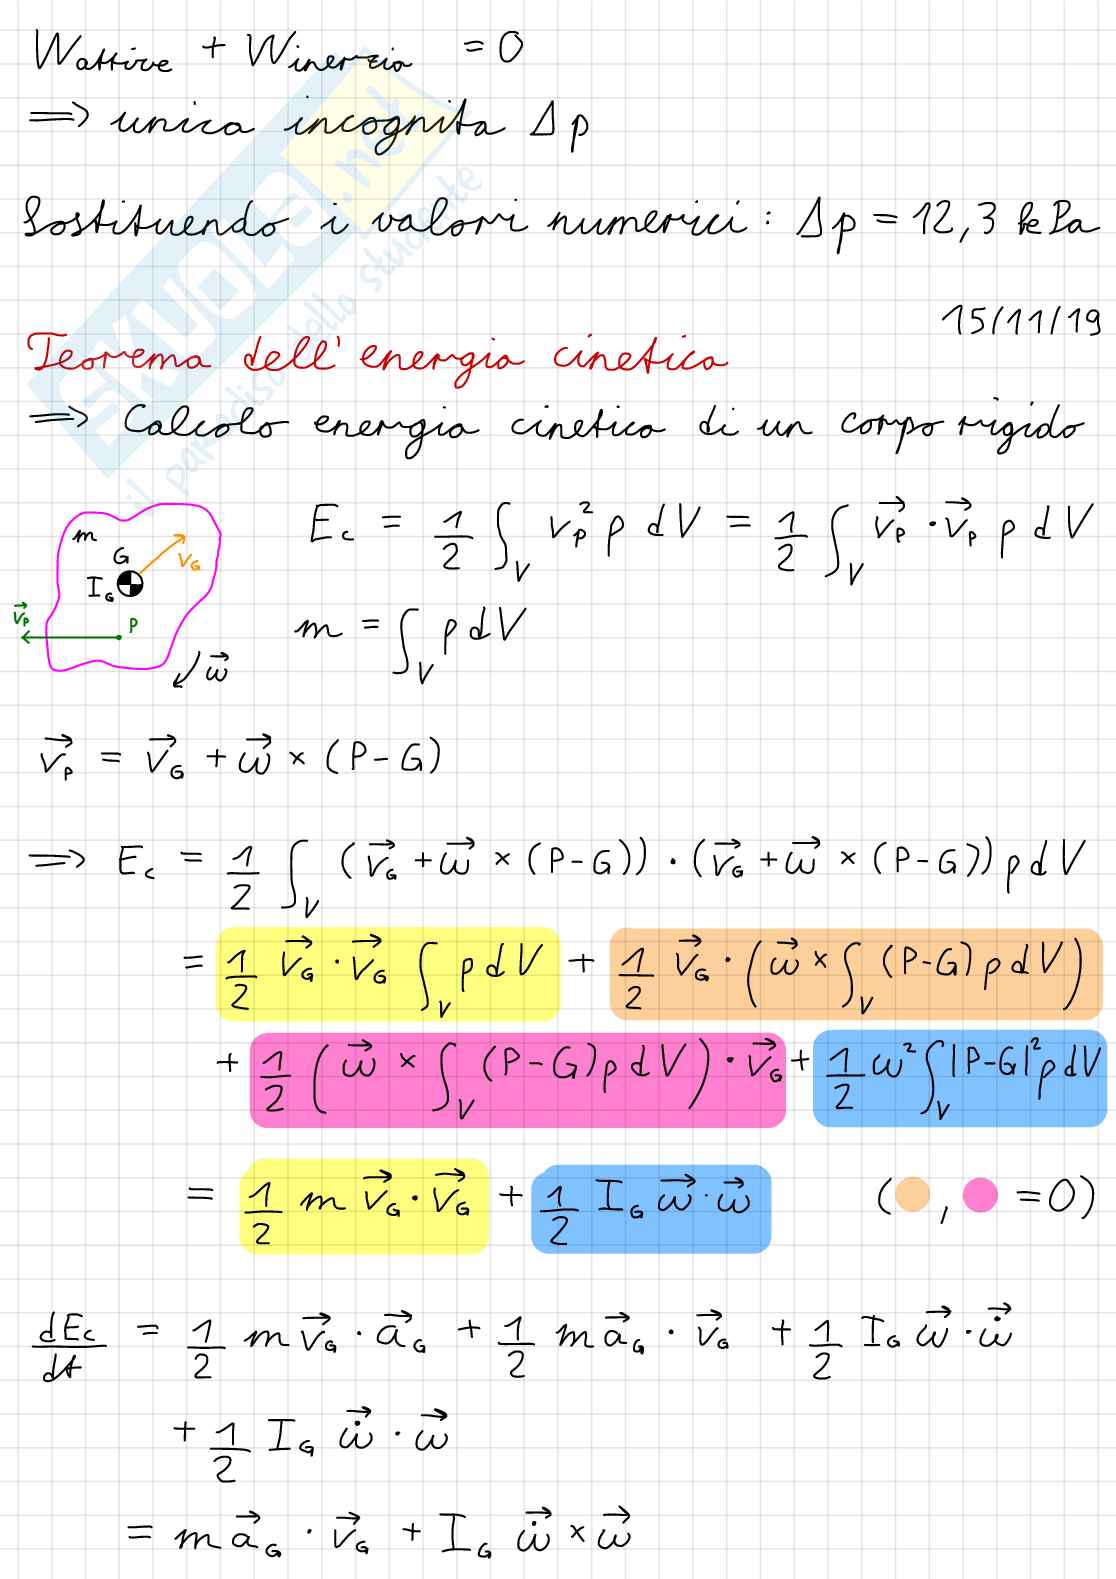 Wattive + Winerzia = 0
⟹ unica incognita Δp
Sostituendo i valori numerici: Δp = 12,3 kPa
15/11/19
Teorema dell'energia cinetica
⟹ Calcolo energia cinetica di un corpo rigido
m
G
I_G
v_G
v⃗_P
P
ω⃗
E_c = 1/2 ∫_V v_P² ρ dV = 1/2 ∫_V v⃗_P · v⃗_P ρ dV
m = ∫_V ρ dV
v⃗_P = v⃗_G + ω⃗ × (P-G)
⟹ E_c = 1/2 ∫_V (v⃗_G + ω⃗ × (P-G)) · (v⃗_G + ω⃗ × (P-G)) ρ dV
= 1/2 v⃗_G · v⃗_G ∫_V ρ dV + 1/2 v⃗_G · (ω⃗ × ∫_V (P-G) ρ dV)
+ 1/2 (ω⃗ × ∫_V (P-G) ρ dV) · v⃗_G + 1/2 ω² ∫_V |P-G|² ρ dV
= 1/2 m v⃗_G · v⃗_G + 1/2 I_G ω⃗ · ω⃗ ( , = 0)
dE_c/dt = 1/2 m v⃗_G · a⃗_G + 1/2 m a⃗_G · v⃗_G + 1/2 I_G ω⃗ · ω̇⃗
+ 1/2 I_G ω̇⃗ · ω⃗
= m a⃗_G · v⃗_G + I_G ω̇⃗ × ω⃗
SKUOLA.net
il paradiso dello studente